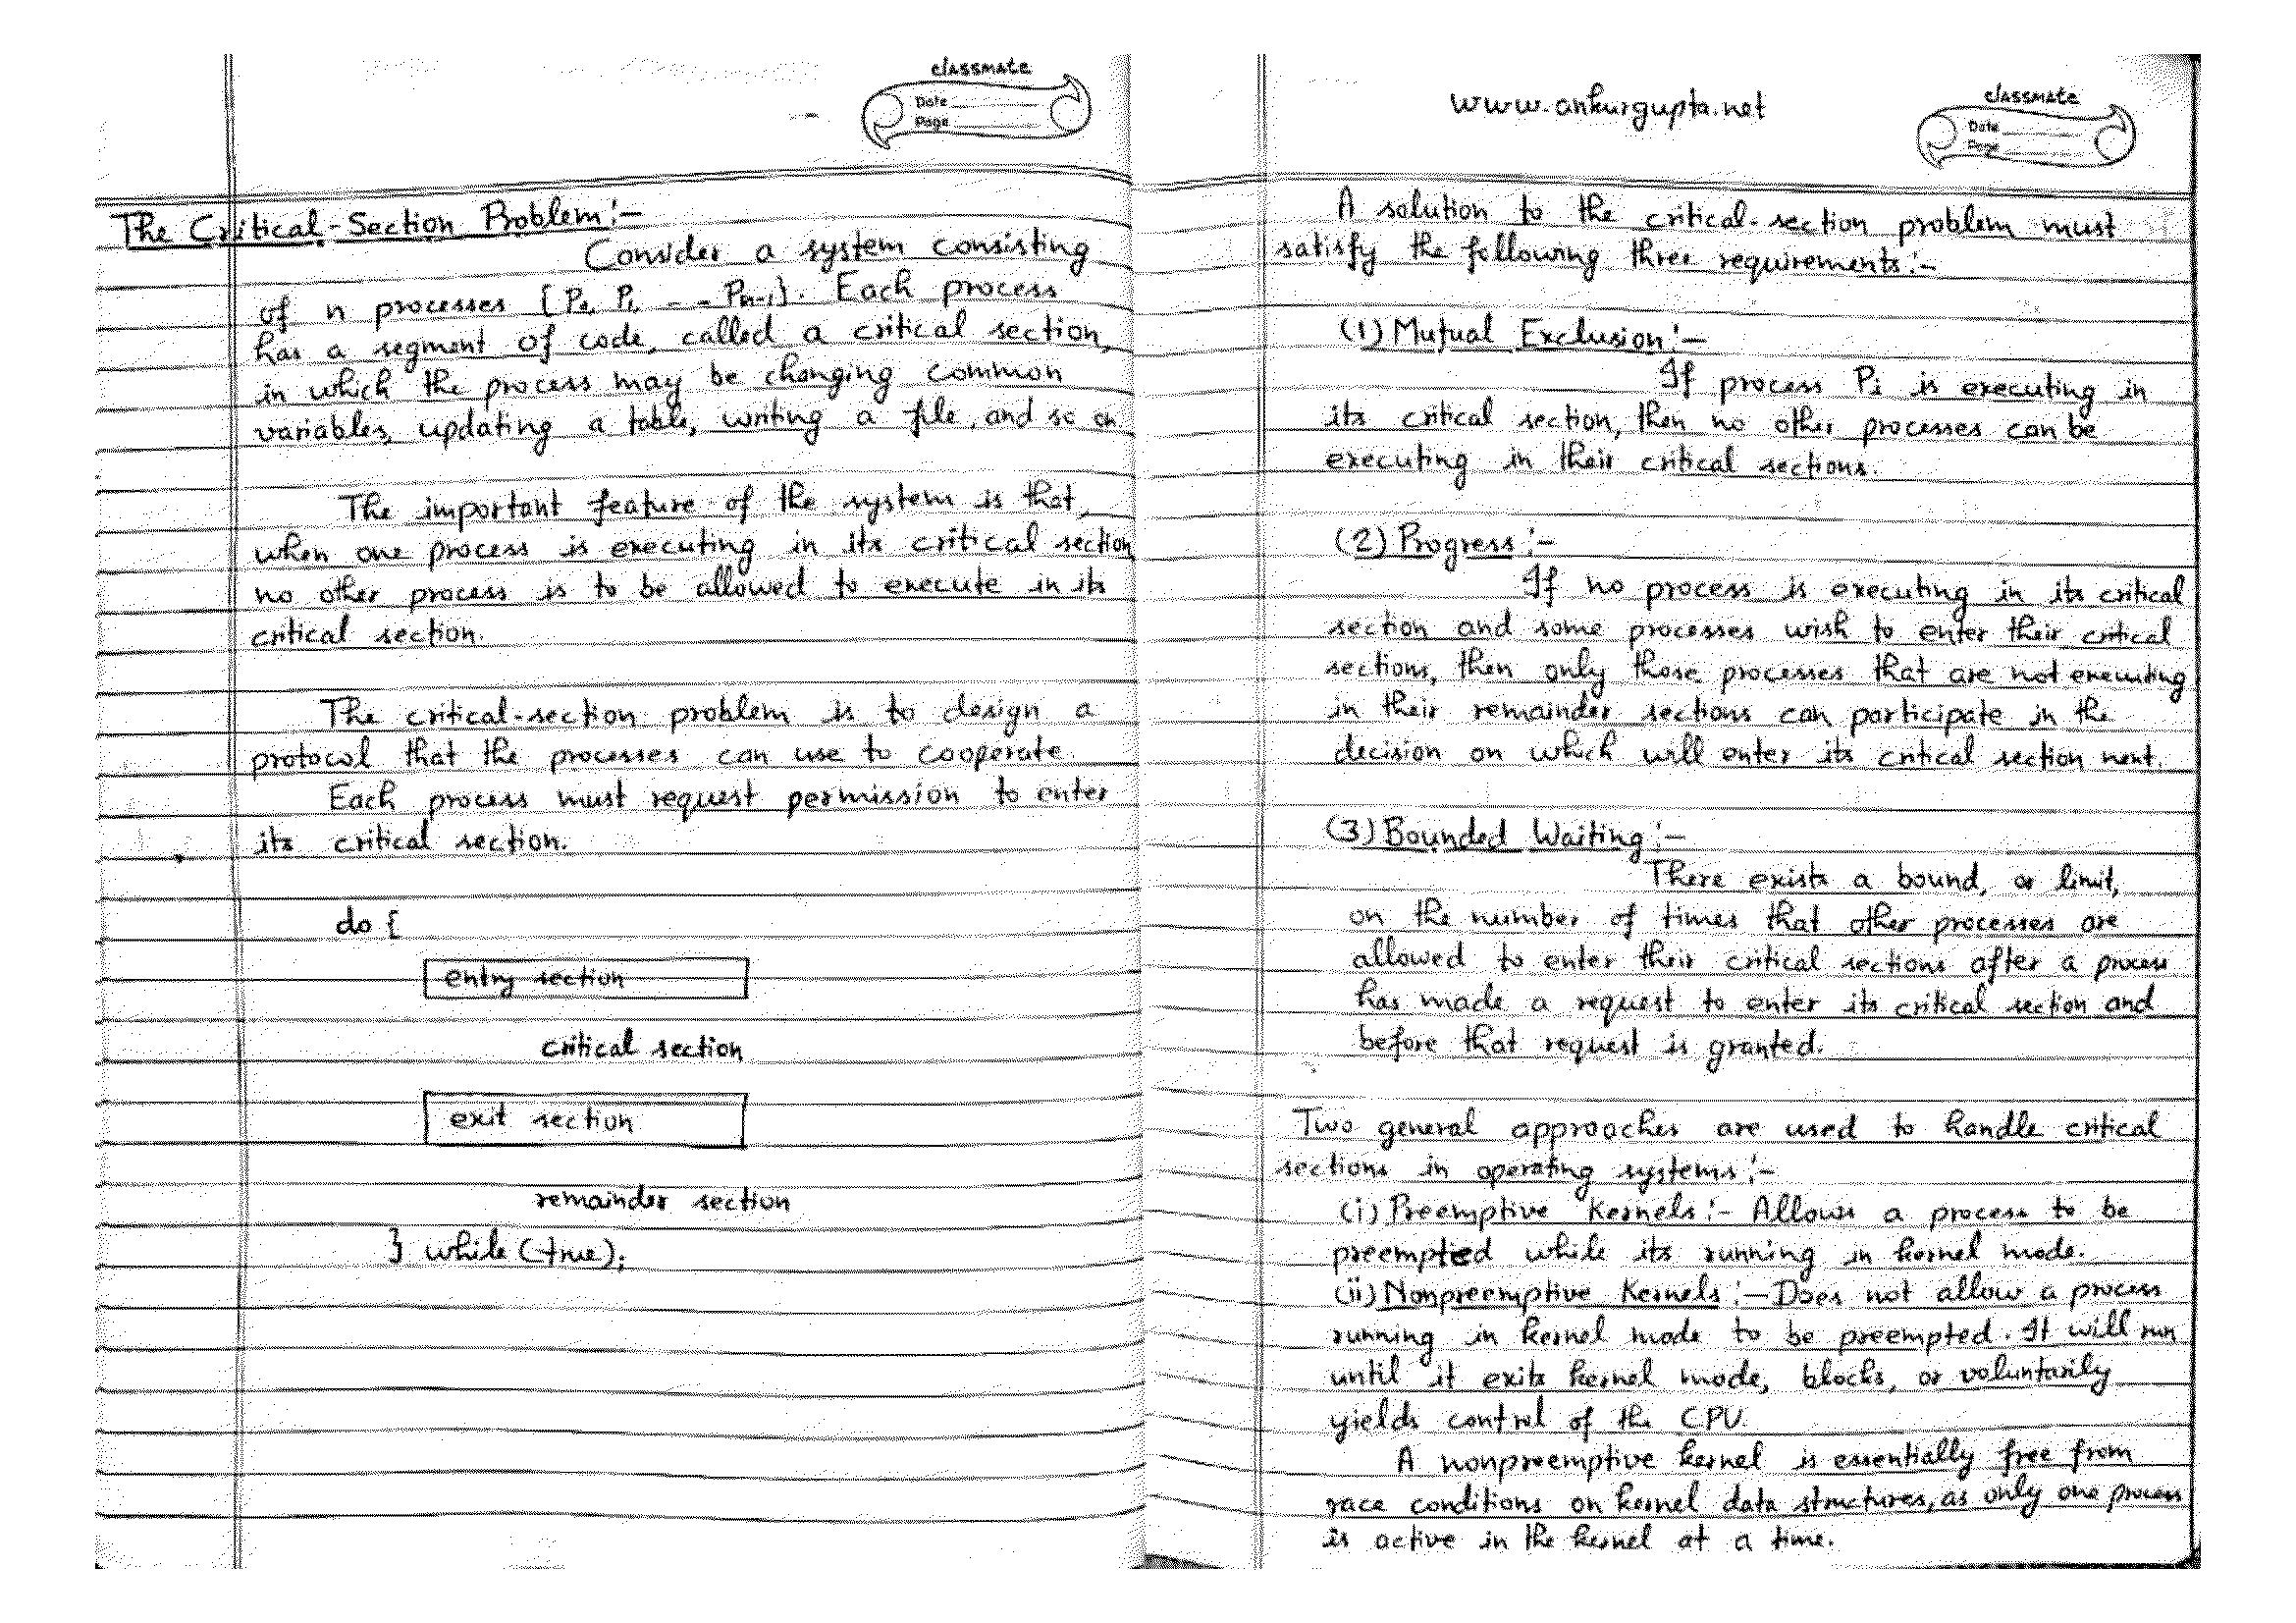 classmate
Date
Page
The Critical-Section Problem:-
Consider a system consisting
of n processes {P0, P1, - - Pn-1}. Each process
has a segment of code, called a critical section,
in which the process may be changing common
variables, updating a table, writing a file, and so on
The important feature of the system is that,
when one process is executing in its critical section
no other process is to be allowed to execute in its
critical section.
The critical-section problem is to design a
protocol that the processes can use to cooperate
Each process must request permission to enter
its critical section.
do {
entry section
critical section
exit section
remainder section
} while (true);
www.ankurgupta.net
classmate
Date
Page
A solution to the critical-section problem must
satisfy the following three requirements:-
(1) Mutual Exclusion:-
If process Pi is executing in
its critical section, then no other processes can be
executing in their critical sections.
(2) Progress:-
If no process is executing in its critical
section and some processes wish to enter their critical
sections, then only those processes that are not executing
in their remainder sections can participate in the
decision on which will enter its critical section next.
(3) Bounded Waiting:-
There exists a bound, or limit,
on the number of times that other processes are
allowed to enter their critical sections after a process
has made a request to enter its critical section and
before that request is granted.
Two general approaches are used to handle critical
sections in operating systems:-
(i) Preemptive Kernels:- Allows a process to be
preempted while its running in kernel mode.
(ii) Nonpreemptive Kernels:- Does not allow a process
running in kernel mode to be preempted. It will run
until it exits kernel mode, blocks, or voluntarily
yields control of the CPU.
A nonpreemptive kernel is essentially free from
race conditions on kernel data structures, as only one process
is active in the kernel at a time.